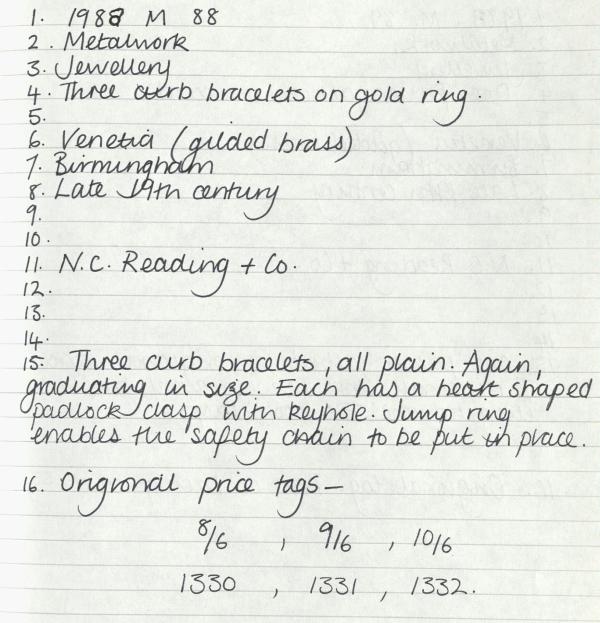 1. 1988 M 88
2. Metalwork
3. Jewellery
4. Three curb bracelets on gold ring.
5.
6. Venetia (gilded brass)
7. Birmingham
8. Late 19th century
9.
10.
11. N.C. Reading + Co.
12.
13.
14.
15. Three curb bracelets, all plain. Again,
graduating in size. Each has a heart shaped
padlock clasp with keyhole. Jump ring
enables the safety chain to be put in place.
16. Origional price tags –
8/6 , 9/6 , 10/6
1330 , 1331 , 1332.